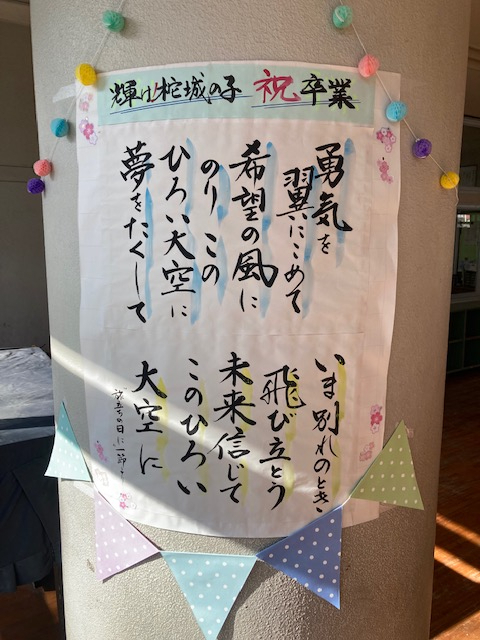 輝け椌城の子 祝 卒業
勇気を
翼にこめて
希望の風に
のり この
ひろい大空に
夢をたくして
いま別れのとき
飛び立とう
未来信じて
このひろい
大空に
旅立ちの日に一節より